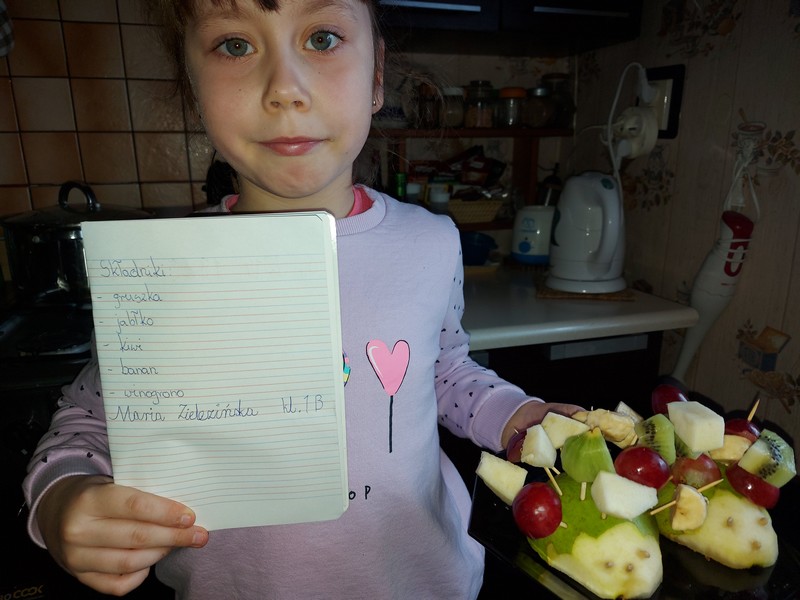 Składniki:
- gruszka
- jabłko
- kiwi
- banan
- winogrono
Maria Zielezińska kl. 1B
OP